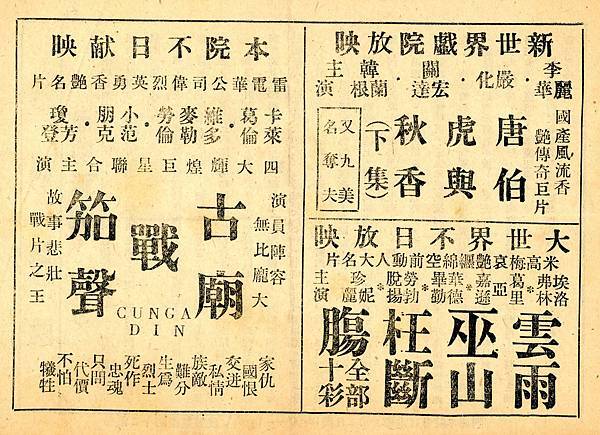 新世界戲院放映
李麗華·嚴化·關宏達·韓蘭根主演
國產風流香
艷傳奇巨片
唐伯虎與秋香（下集）
又九美
名奪夫
大世界不日放映
米高梅哀艷纏綿空前動人大名片
埃洛弗林*葛里亞嘉遜*華德畢勤*勞勃脫揚*珍妮麗主演
雲雨巫山枉斷腸
全部十彩
本院不日献映
雷電華公司偉烈英勇香艷名片
卡萊葛倫·維多麥勒勞倫·小范朋克·瓊芳登
四大輝煌巨星聯合主演
演員陣容
無比龐大
古廟戰笳聲
CUNGA
DIN
故事悲壯
戰片之王
家仇國恨
交迸私情
族敵難分
生爲烈士
死作忠魂
只問代價
不怕犧牲